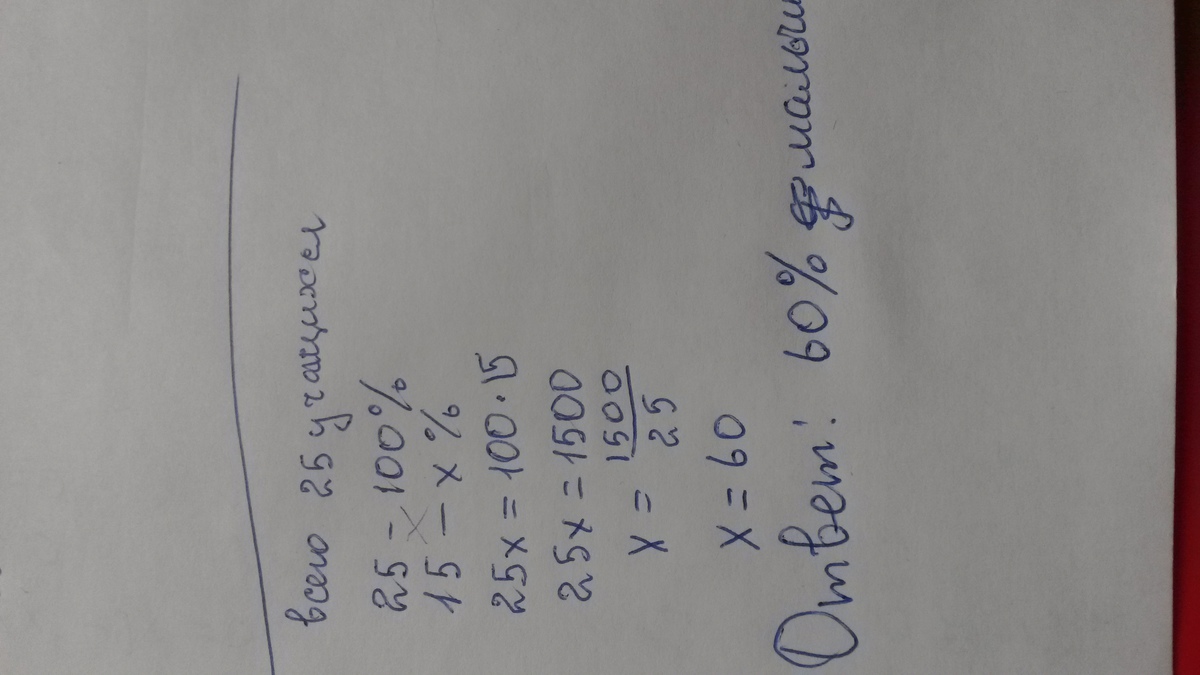 всего 25 учащихся
25 – 100%
15 – x %
25x = 100 · 15
25x = 1500
x = 1500/25
x = 60
Ответ: 60%